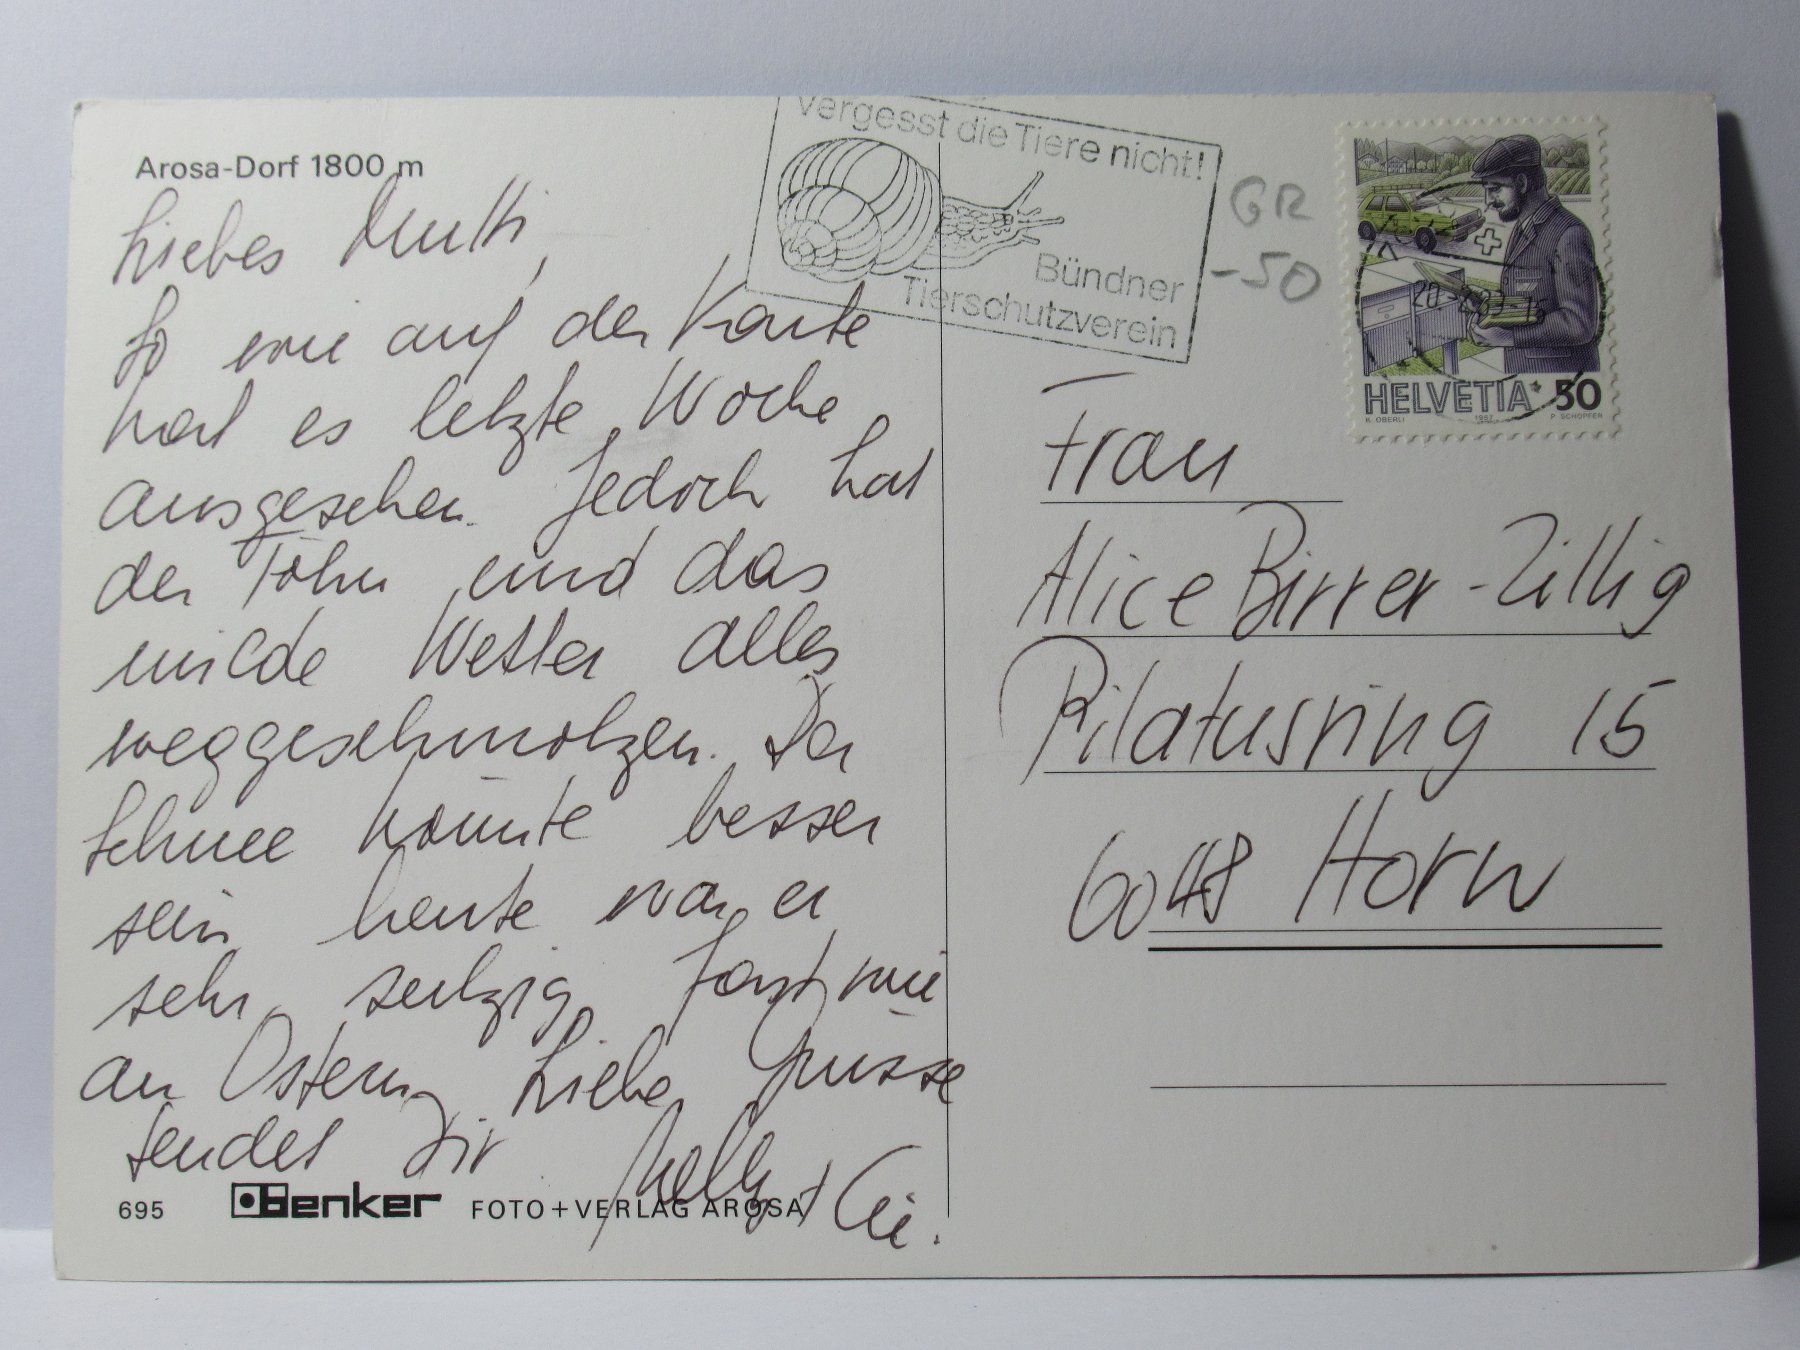 Arosa-Dorf 1800 m
Liebes Mutti,
So wie auf der Karte
hat es letzte Woche
ausgesehen. Jedoch hat
der Föhn und das
milde Wetter alles
weggeschmolzen. Der
Schnee könnte besser
sein, heute war er
sehr sulzig, fast wie
an Ostern. Liebe Grüsse
sendet Dir
695 Benker FOTO+VERLAG AROSA
Vergesst die Tiere nicht!
Bündner
Tierschutzverein
GR
-50
HELVETIA 50
K. OBERLI 1987 P. SCHOPFER
Frau
Alice Birrer-Zillig
Pilatusring 15
6048 Horw